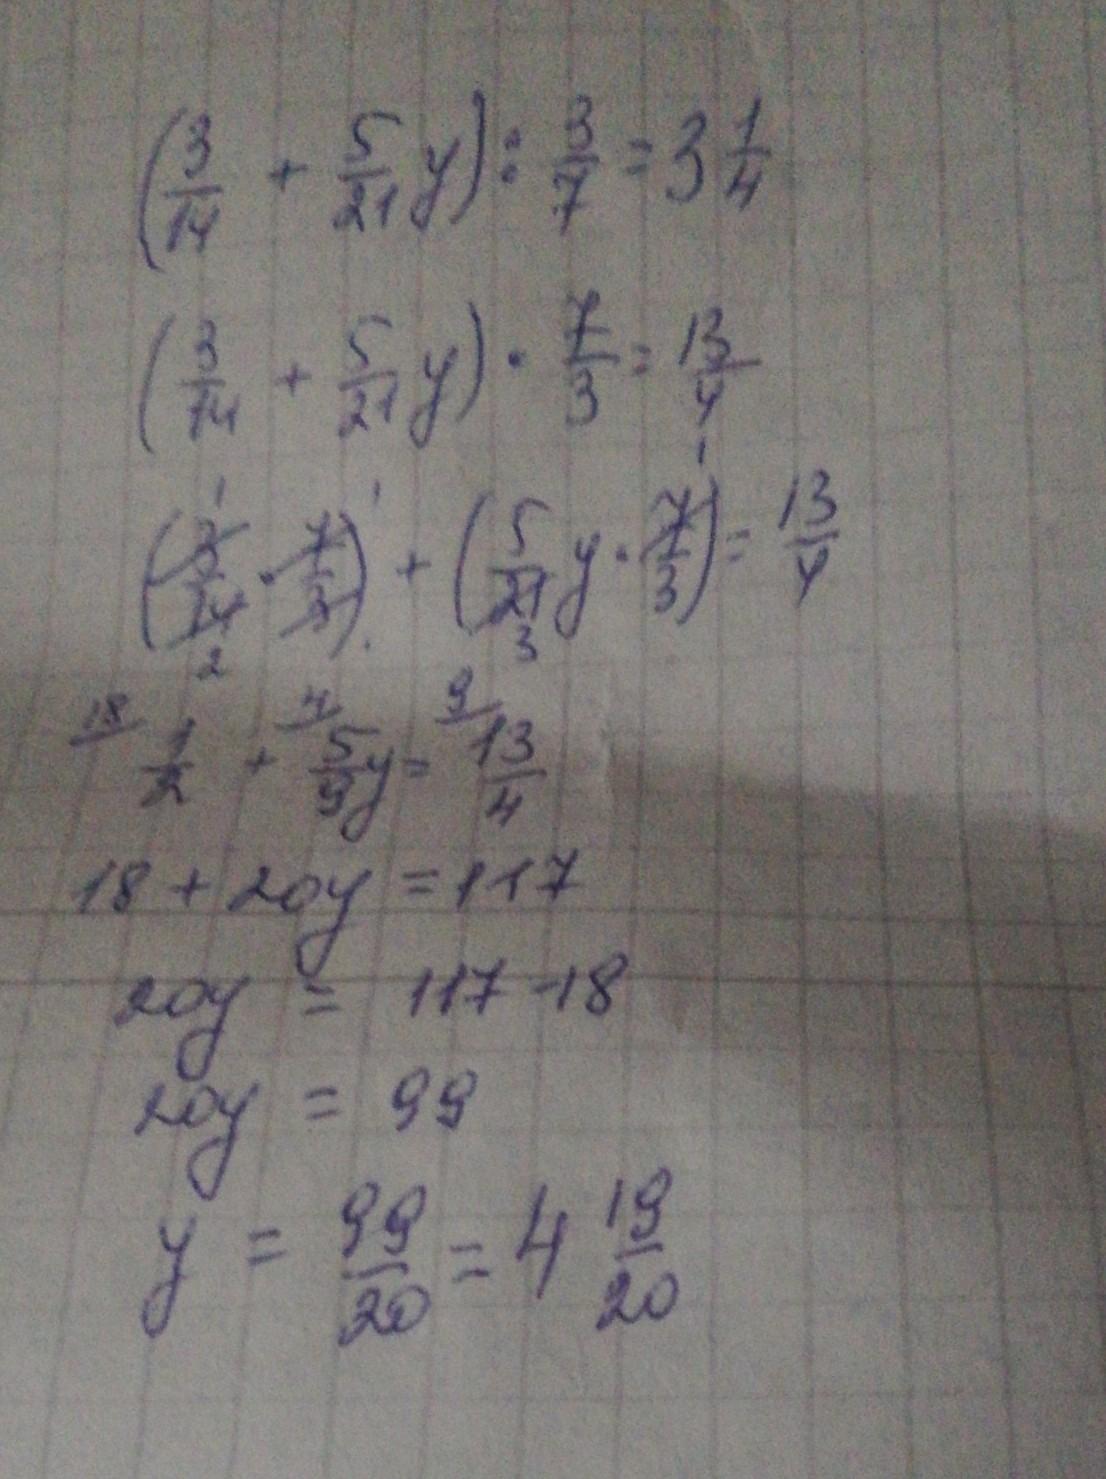 (3/14 + 5/21 y) : 3/7 = 3 1/4
(3/14 + 5/21 y) · 7/3 = 13/4
(3/14 · 7/3) + (5/21 y · 7/3) = 13/4
1/2 + 5/9 y = 13/4
18 + 20y = 117
20y = 117 - 18
20y = 99
y = 99/20 = 4 19/20